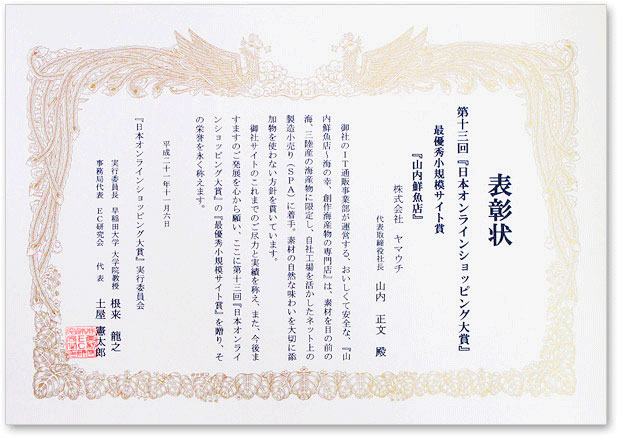 表彰状
第十三回『日本オンラインショッピング大賞』
最優秀小規模サイト賞
『山内鮮魚店』
株式会社 ヤマウチ
代表取締役社長 山内 正文 殿
御社のIT通販事業部が運営する、おいしくて安全な、『山
内鮮魚店〜海の幸、創作海産物の専門店』は、素材を目の前の
海、三陸産の海産物に限定し、自社工場を活かしたネット上の
製造小売り（SPA）に着手。素材の自然な味わいを大切に添
加物を使わない方針を貫いています。
御社サイトのこれまでのご尽力と実績を称え、また、今後ま
すますのご発展を心から願い、ここに第十三回『日本オンライ
ンショッピング大賞』の『最優秀小規模サイト賞』を贈り、そ
の栄誉を永く称えます。
平成二十一年十一月六日
『日本オンラインショッピング大賞』実行委員会
実行委員長 早稲田大学 大学院教授 根来 龍之
事務局代表 EC研究会 代表 土屋 憲太郎